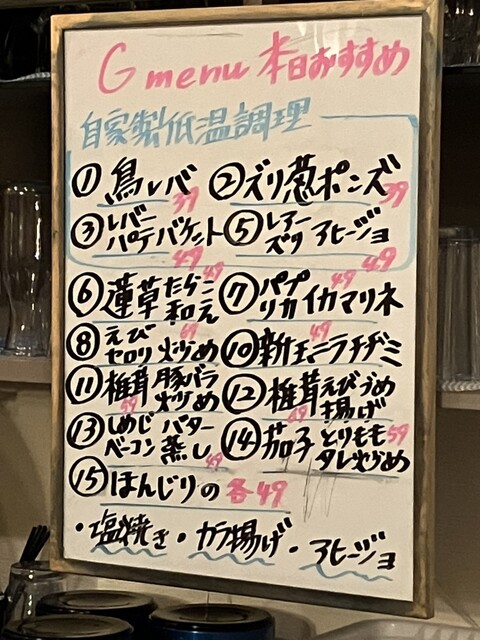 G menu 本日おすすめ
自家製低温調理
① 鳥レバ 39 ② ズリ葱ポンズ 39
③ レバーパテバケット 49 ⑤ レアーズリ アヒージョ 49
⑥ 蓮草たらこ和え 49 ⑦ パプリカイカマリネ 49
⑧ えびセロリ炒め 69 ⑩ 新玉ニラチヂミ 49
⑪ 椎茸豚バラ炒め 59 ⑫ 椎茸えびうめ揚げ 49
⑬ しめじバターベーコン蒸し 49 ⑭ 茄子とりももタレ炒め 59
⑮ ぼんじりの 各49
・塩焼き・カラ揚げ・アヒージョ